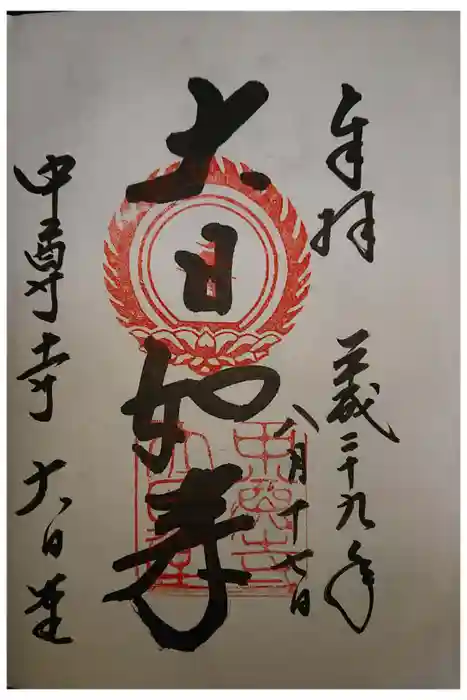 奉拝
平成二十九年
八月十七日
大日如来
中尊寺 大日堂